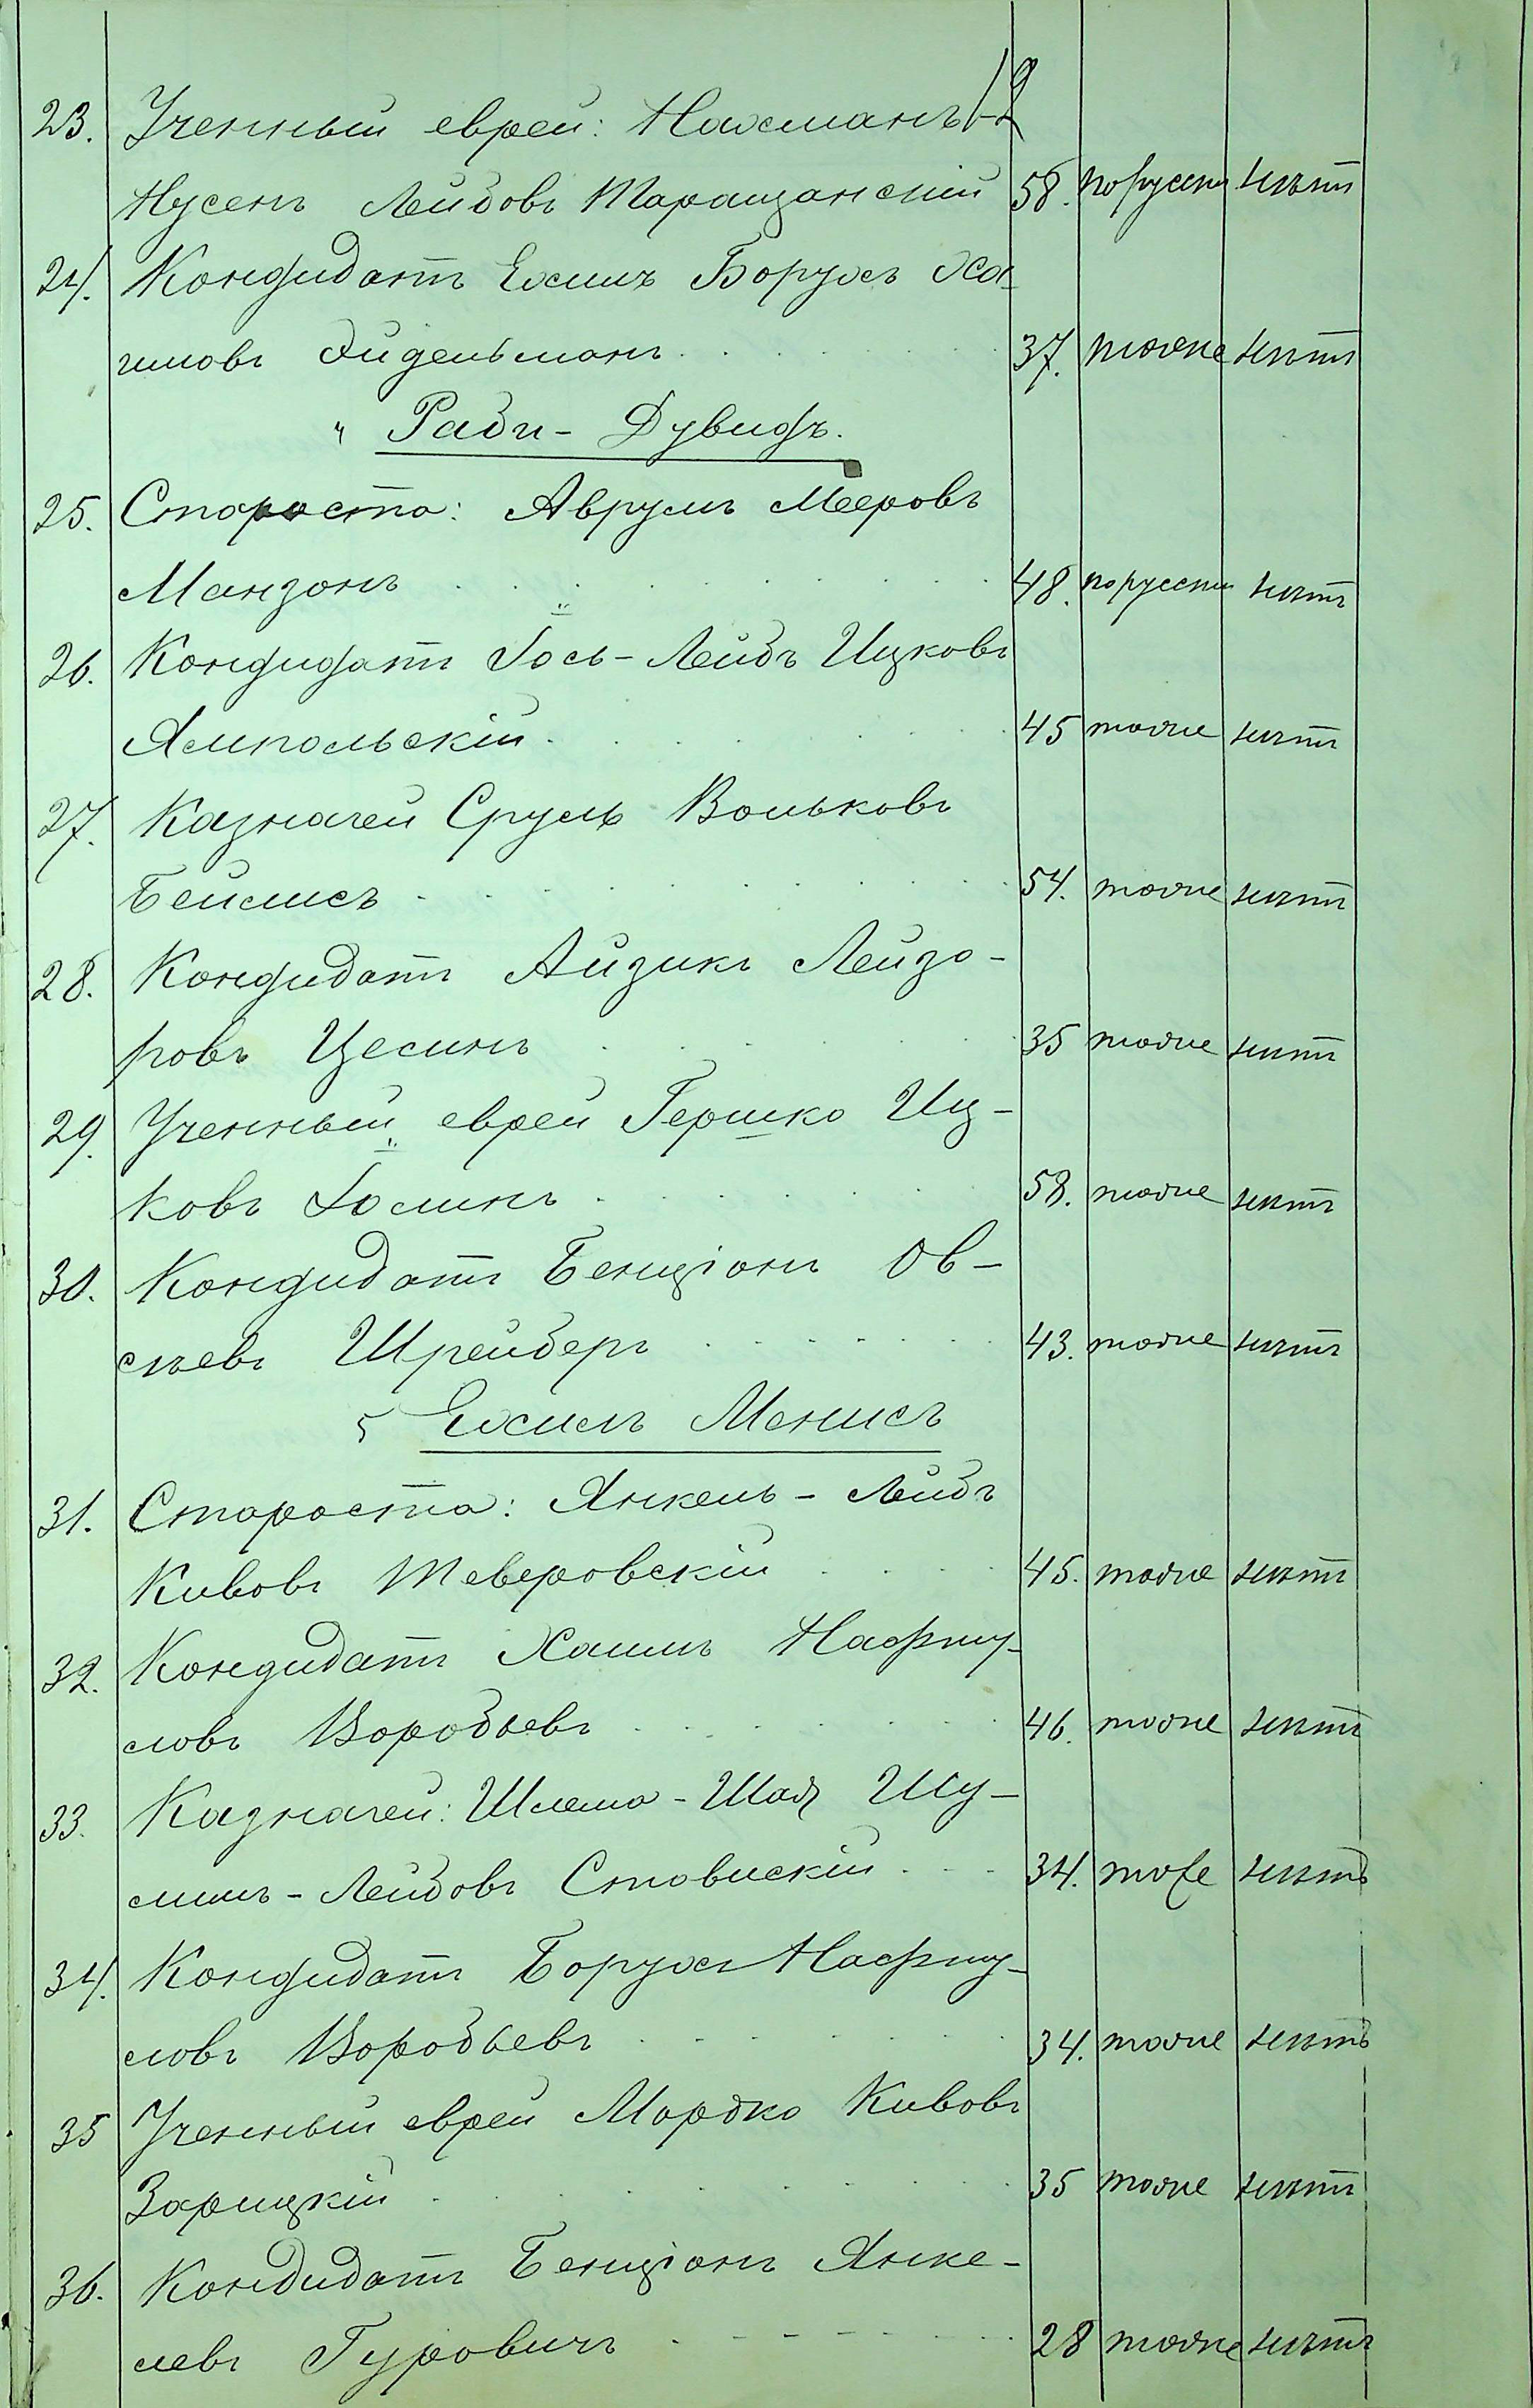 23. Ученный еврей: Нахманъ-
Нусенъ Лейбовъ Таращанскій 58. порусски нѣтъ
24. Кондидатъ Ехилъ Борухъ Ха-
имовъ Эйдельманъ 37. тоже нѣтъ
" Раби-Дувидъ.
25. Староста: Аврумъ Мееровъ
Манзонъ 48. порусски нѣтъ
26. Кондидатъ Іось-Лейбъ Ицковъ
Ямпольскій 45 тоже нѣтъ
27. Казначей Сруль Вольковъ
Бейлисъ 54. тоже нѣтъ
28. Кондидатъ Айзикъ Лейзо-
ровъ Цесинъ 35 тоже нѣтъ
29. Ученный еврей Гершко Иц-
ковъ Іолинъ 58. тоже нѣтъ
30. Кондидатъ Бенціонъ Ов-
сѣевъ Шрейберъ 43. тоже нѣтъ
" Ехиелъ Менисъ
31. Староста: Янкель-Лейбъ
Кивовъ Тверовскій 45. тоже нѣтъ
32. Кондидатъ Хаимъ Нафту-
ловъ Воробьевъ 46. тоже нѣтъ
33. Казначей: Шлема-Шая Шу-
лимъ-Лейбовъ Ставискій 34. тоже нѣтъ
34. Кондидатъ Борухъ Нафту-
ловъ Воробьевъ 34. тоже нѣтъ
35 Ученный еврей Мордко Кивовъ
Зарицкій 35 тоже нѣтъ
36. Кондидатъ Бенціонъ Янке-
левъ Гуровичъ 28 тоже нѣтъ